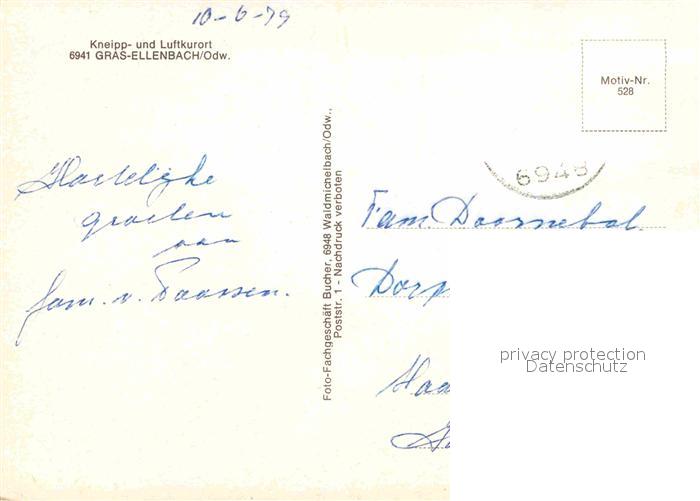 10-6-79
Kneipp- und Luftkurort
6941 GRAS-ELLENBACH/Odw.
Motiv-Nr.
528
6948
Hartelijke
groeten
van
fam. v. Baarsen.
Foto-Fachgeschäft Bucher, 6948 Waldmichelbach/Odw.,
Poststr. 1 - Nachdruck verboten
Fam Doornebal
Dorp
Haa
privacy protection
Datenschutz